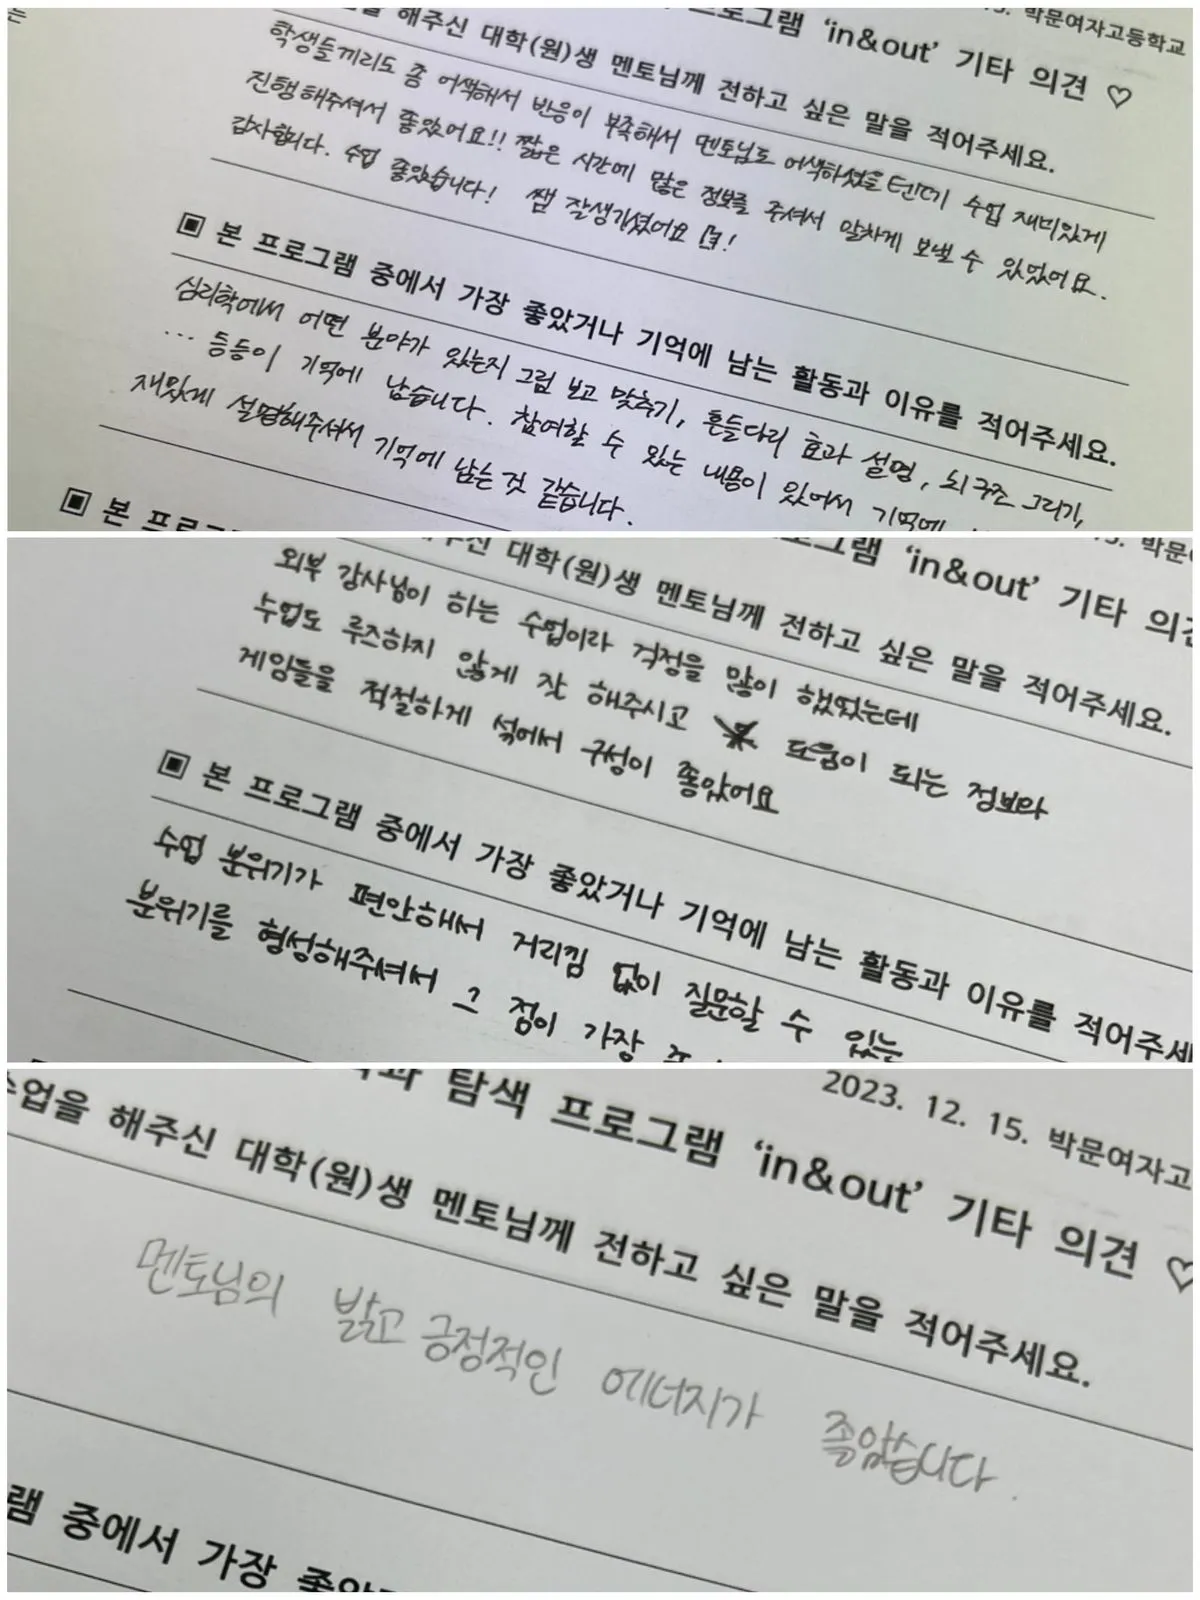 5. 박문여자고등학교
프로그램 ‘in&out’ 기타 의견 ♡
을 해주신 대학(원)생 멘토님께 전하고 싶은 말을 적어주세요.
학생들끼리도 좀 어색해서 반응이 부족해서 멘토님도 어색하셨을텐데 수업 재미있게
진행해주셔서 좋았어요!! 짧은 시간에 많은 정보를 주셔서 알차게 보낼 수 있었어요.
감사합니다. 수업 좋았습니다! 쌤 잘생기셨어요 !
▣ 본 프로그램 중에서 가장 좋았거나 기억에 남는 활동과 이유를 적어주세요.
심리학에서 어떤 분야가 있는지 그림 보고 맞추기, 흔들다리 효과 설명, 뇌 구조 그리기,
… 등등이 기억에 남습니다. 참여할 수 있는 내용이 있어서 기억에
재밌게 설명해주셔서 기억에 남는 것 같습니다.
▣ 본 프로그
5. 박문여
프로그램 ‘in&out’ 기타 의견
해주신 대학(원)생 멘토님께 전하고 싶은 말을 적어주세요.
외부 강사님이 하는 수업이라 걱정을 많이 했었는데
수업도 루즈하지 않게 잘 해주시고 도움이 되는 정보와
게임들을 적절하게 섞어서 구성이 좋았어요
▣ 본 프로그램 중에서 가장 좋았거나 기억에 남는 활동과 이유를 적어주세
수업 분위기가 편안해서 거리낌 없이 질문할 수 있는
분위기를 형성해주셔서 그 점이 가장
2023. 12. 15. 박문여자고
과 탐색 프로그램 ‘in&out’ 기타 의견 ♡
수업을 해주신 대학(원)생 멘토님께 전하고 싶은 말을 적어주세요.
멘토님의 밝고 긍정적인 에너지가 좋았습니다.
램 중에서 가장 좋았